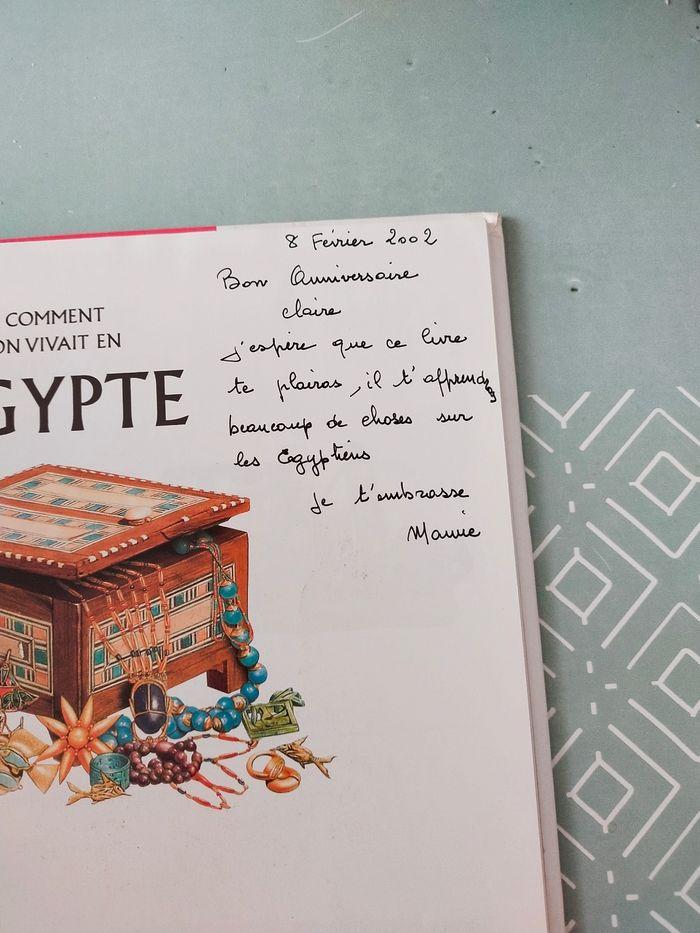 COMMENT
ON VIVAIT EN
GYPTE
8 Février 2002
Bon Anniversaire
claire
j'espère que ce livre
te plairas, il t'apprendras
beaucoup de choses sur
les Egyptiens
je t'embrasse
Mamie